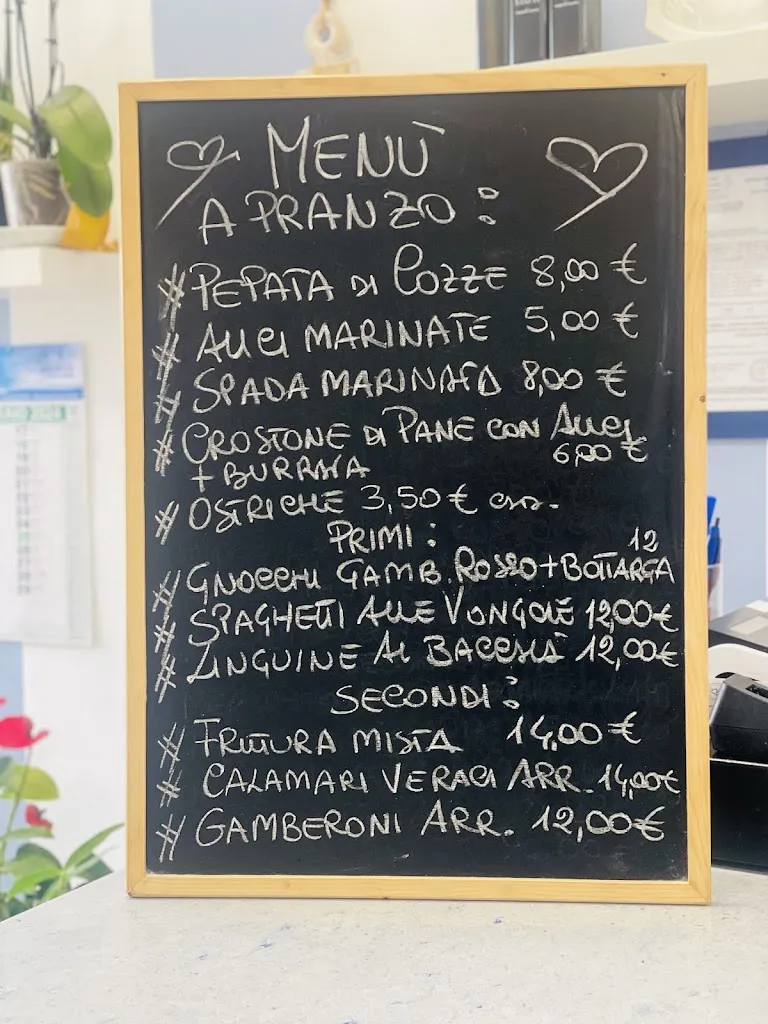 MENÙ
A PRANZO:
# PEPATA DI COZZE 8,00 €
# ALICI MARINATE 5,00 €
# SPADA MARINATA 8,00 €
# CROSTONE DI PANE CON ALICI
+ BURRATA 6,00 €
# OSTRICHE 3,50 €
PRIMI:
# GNOCCHI GAMB. ROSSO + BOTTARGA 12
# SPAGHETTI ALLE VONGOLE 12,00€
# LINGUINE AL BACCALÀ 12,00€
SECONDI:
# FRITTURA MISTA 14,00 €
# CALAMARI VERACI ARR. 14,00€
# GAMBERONI ARR. 12,00€